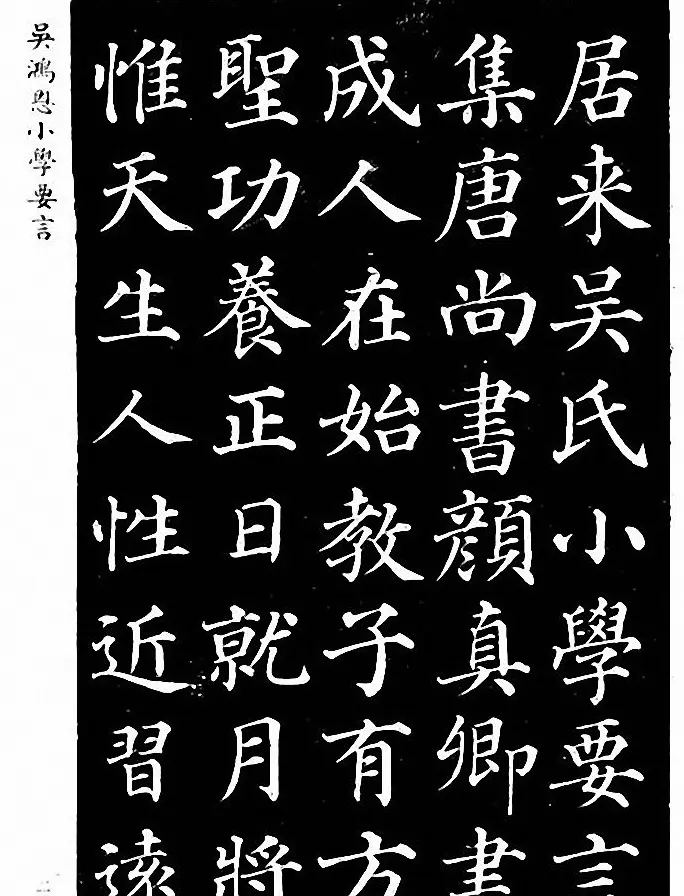 居来吴氏小學要言
集唐尚書顏真卿書
成人在始教子有方
聖功養正日就月將
惟天生人性近習遠
吳鴻恩小學要言